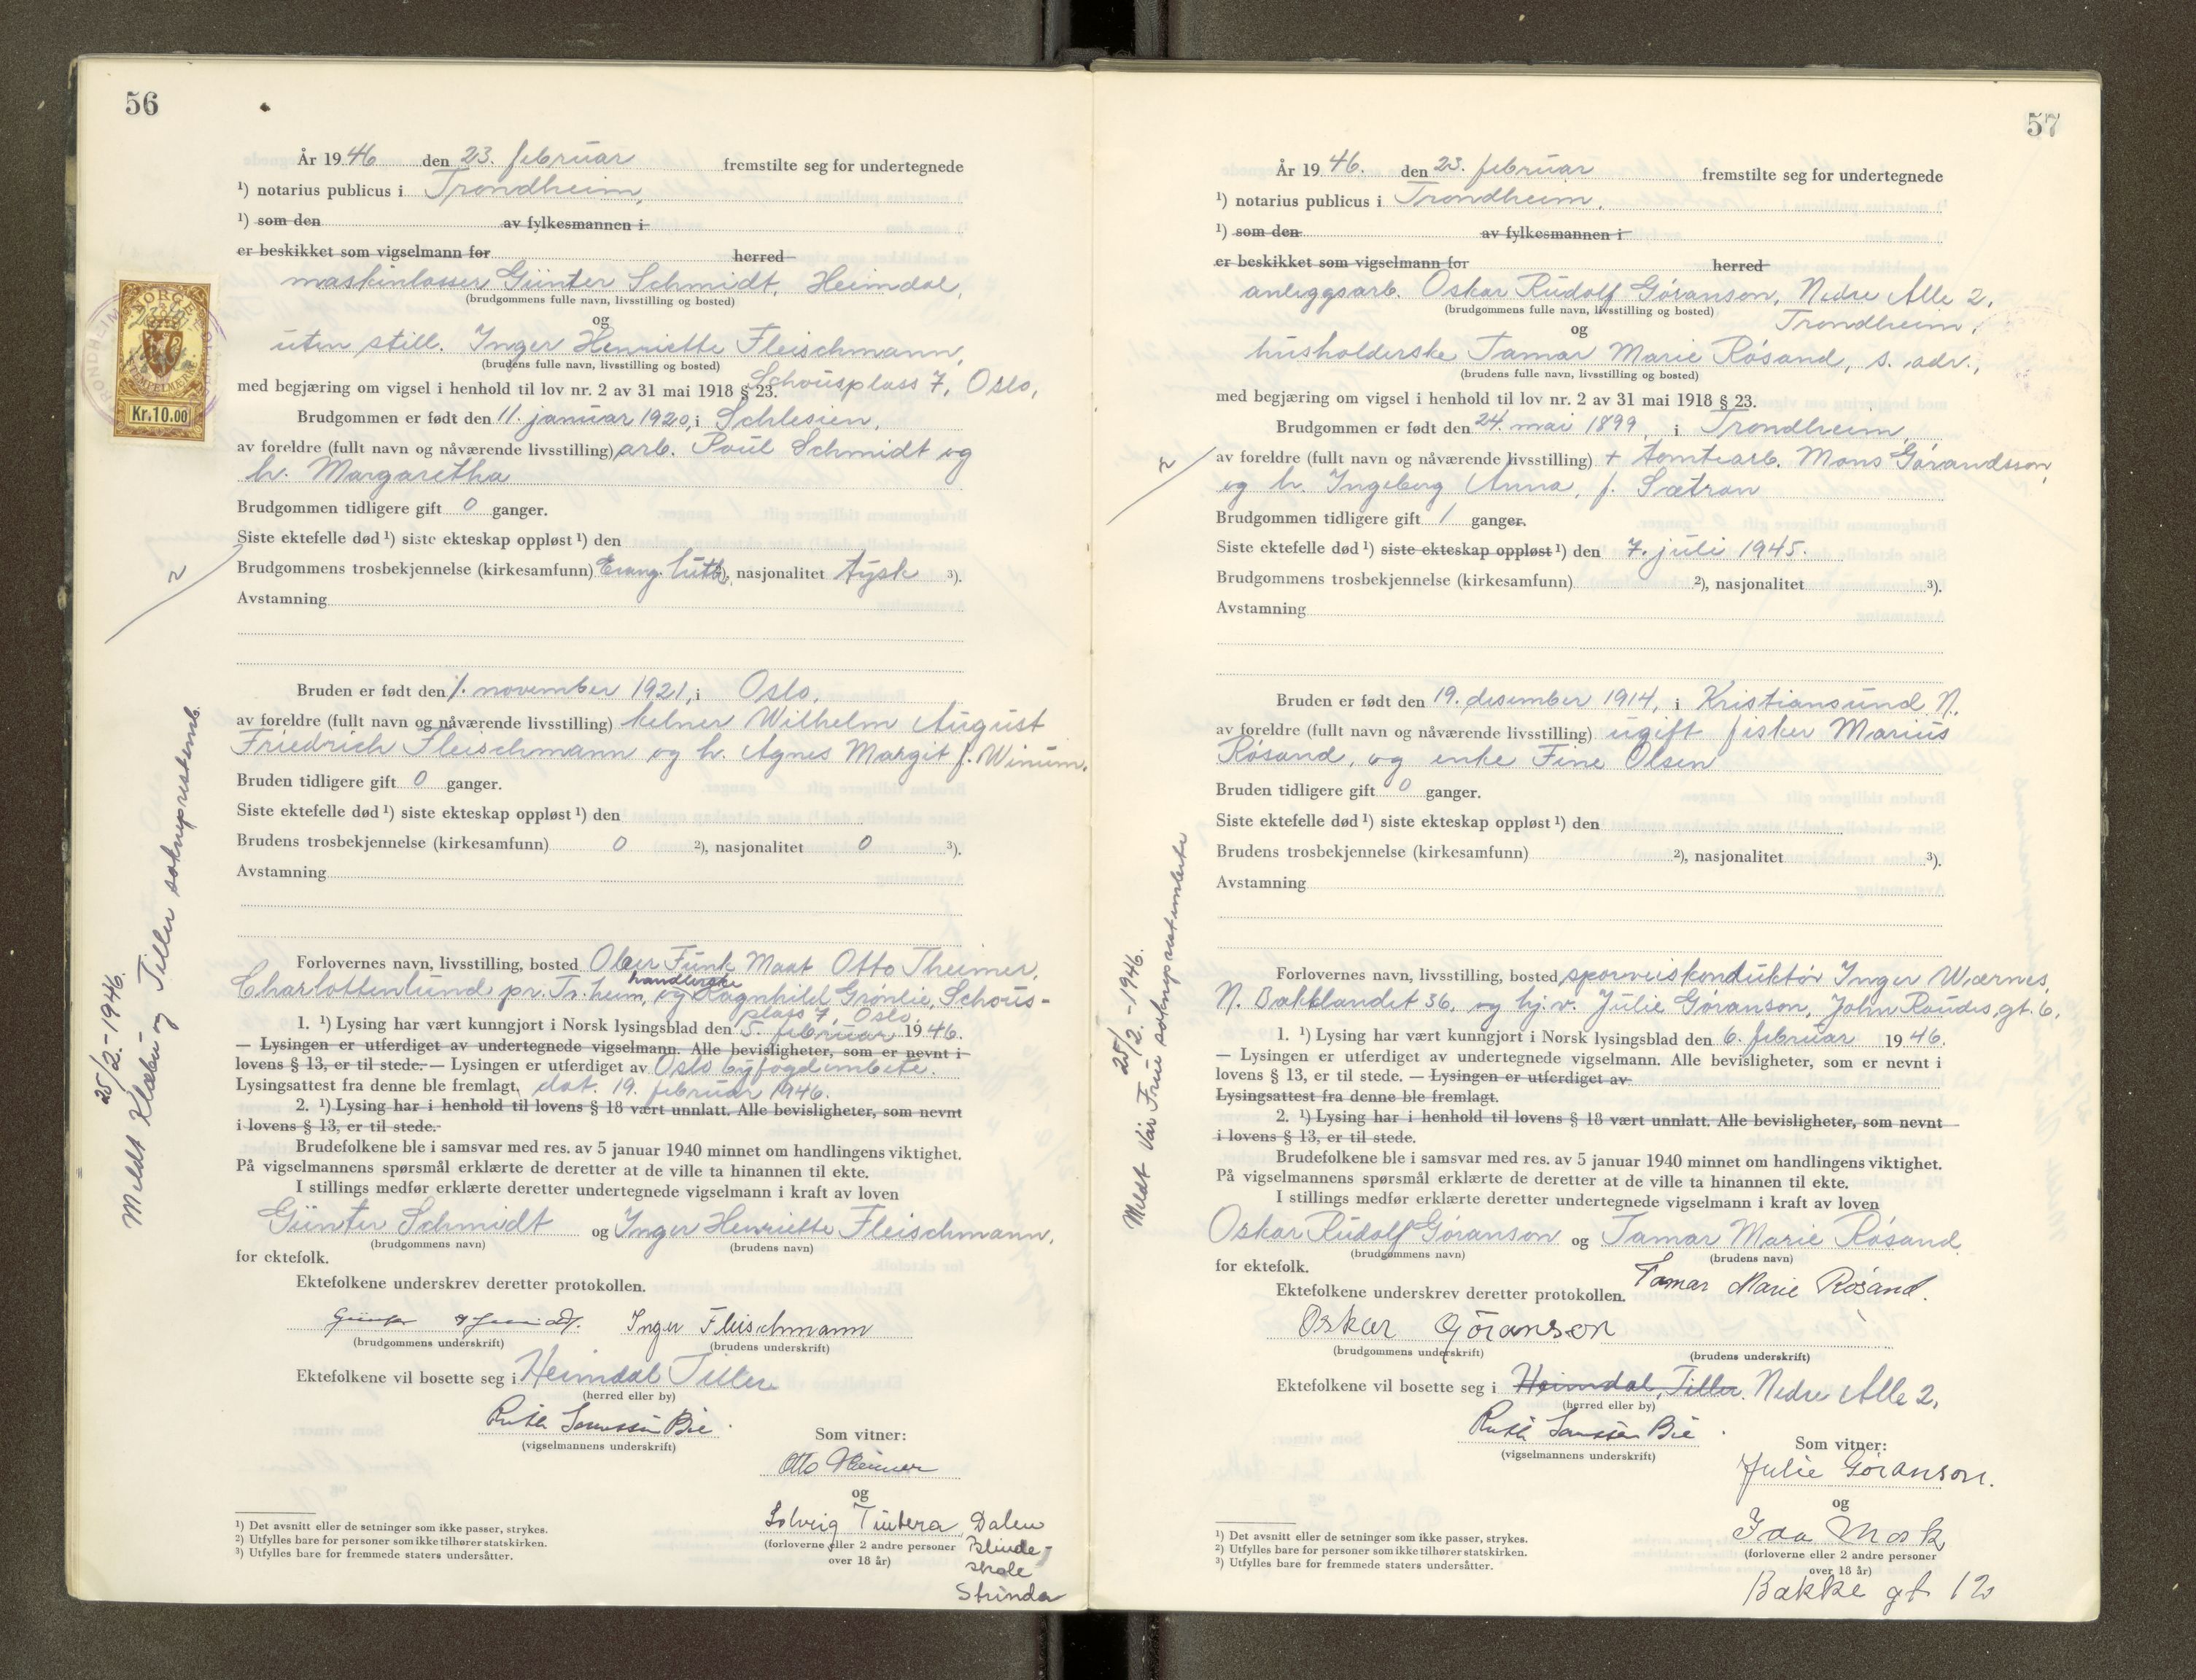 56
År 1946 den 23. februar fremstilte seg for undertegnede
¹) notarius publicus i Trondheim,
¹) som den av fylkesmannen i
er beskikket som vigselmann for herred
maskinlasser Günter Schmidt, Heimdal,
(brudgommens fulle navn, livsstilling og bosted)
og
uten still. Inger Henriette Fleischmann,
(brudens fulle navn, livsstilling og bosted)
Schousplass 7, Oslo,
med begjæring om vigsel i henhold til lov nr. 2 av 31 mai 1918 § 23.
Brudgommen er født den 11. januar 1920, i Schlesien,
av foreldre (fullt navn og nåværende livsstilling) arb. Paul Schmidt og
h. Margaretha
Brudgommen tidligere gift 0 ganger.
Siste ektefelle død ¹) siste ekteskap oppløst ¹) den
Brudgommens trosbekjennelse (kirkesamfunn) Evang. luth. ²), nasjonalitet tysk ³).
Avstamning
Bruden er født den 1. november 1921, i Oslo,
av foreldre (fullt navn og nåværende livsstilling) kelner Wilhelm August
Friedrich Fleischmann og h. Agnes Margit f. Winum.
Bruden tidligere gift 0 ganger.
Siste ektefelle død ¹) siste ekteskap oppløst ¹) den
Brudens trosbekjennelse (kirkesamfunn) 0 ²), nasjonalitet 0 ³).
Avstamning
Forlovernes navn, livsstilling, bosted Ober Funk Maat Otto Theimer,
handlerske
Charlottenlund pr. Tr.heim, og Ragnhild Grønlie, Schous-
plass 7, Oslo,
1. ¹) Lysing har vært kunngjort i Norsk lysingsblad den 5. februar 1946.
— Lysingen er utferdiget av undertegnede vigselmann. Alle bevisligheter, som er nevnt i
lovens § 13, er til stede. — Lysingen er utferdiget av Oslo byfogdembete.
Lysingsattest fra denne ble fremlagt, dat. 19. februar 1946.
2. ¹) Lysing har i henhold til lovens § 18 vært unnlatt. Alle bevisligheter, som nevnt
i lovens § 13, er til stede.
Brudefolkene ble i samsvar med res. av 5 januar 1940 minnet om handlingens viktighet.
På vigselmannens spørsmål erklærte de deretter at de ville ta hinannen til ekte.
I stillings medfør erklærte deretter undertegnede vigselmann i kraft av loven
Günter Schmidt og Inger Henriette Fleischmann,
(brudgommens navn) (brudens navn)
for ektefolk.
Ektefolkene underskrev deretter protokollen.
Günter Schmidt. Inger Fleischmann
(brudgommens underskrift) (brudens underskrift)
Ektefolkene vil bosette seg i Heimdal Tiller
(herred eller by)
Ruth Bie
(vigselmannens underskrift)
Som vitner:
Otto Theimer
og
Solveig Dalen
(forloverne eller 2 andre personer Blinde-
over 18 år) skole
Strinda
¹) Det avsnitt eller de setninger som ikke passer, strykes.
²) Utfylles bare for personer som ikke tilhører statskirken.
³) Utfylles bare for fremmede staters undersåtter.
NORGE
STEMPELMERKE
Kr.10.00
2
25/2.-1946.
Meldt Klæbu og Tiller sokneprestemb.
57
År 1946. den 23. februar fremstilte seg for undertegnede
¹) notarius publicus i Trondheim,
¹) som den av fylkesmannen i
er beskikket som vigselmann for herred
anleggsarb. Oskar Rudolf Göranson, Nedre Alle 2,
(brudgommens fulle navn, livsstilling og bosted) Trondheim,
og
husholderske Tamar Marie Røsand, s. adr.,
(brudens fulle navn, livsstilling og bosted)
med begjæring om vigsel i henhold til lov nr. 2 av 31 mai 1918 § 23.
Brudgommen er født den 24. mai 1899, i Trondheim,
av foreldre (fullt navn og nåværende livsstilling) + tomtearb. Mons Görandsson,
og h. Ingeborg Anna, f. Sætran
Brudgommen tidligere gift 1 ganger.
Siste ektefelle død ¹) siste ekteskap oppløst ¹) den 7. juli 1945.
Brudgommens trosbekjennelse (kirkesamfunn) ²), nasjonalitet ³).
Avstamning
Bruden er født den 19. desember 1914, i Kristiansund N.
av foreldre (fullt navn og nåværende livsstilling) ugift fisker Marius
Røsand, og enke Fine Olsen
Bruden tidligere gift 0 ganger.
Siste ektefelle død ¹) siste ekteskap oppløst ¹) den
Brudens trosbekjennelse (kirkesamfunn) ²), nasjonalitet ³).
Avstamning
Forlovernes navn, livsstilling, bosted sporveiskonduktør Inger Wærnes,
N. Bakklandet 36, og hj.v. Julie Göranson, John Raudes gt. 6,
1. ¹) Lysing har vært kunngjort i Norsk lysingsblad den 6. februar 1946.
— Lysingen er utferdiget av undertegnede vigselmann. Alle bevisligheter, som er nevnt i
lovens § 13, er til stede. — Lysingen er utferdiget av
Lysingsattest fra denne ble fremlagt.
2. ¹) Lysing har i henhold til lovens § 18 vært unnlatt. Alle bevisligheter, som nevnt
i lovens § 13, er til stede.
Brudefolkene ble i samsvar med res. av 5 januar 1940 minnet om handlingens viktighet.
På vigselmannens spørsmål erklærte de deretter at de ville ta hinannen til ekte.
I stillings medfør erklærte deretter undertegnede vigselmann i kraft av loven
Oskar Rudolf Göranson og Tamar Marie Røsand
(brudgommens navn) (brudens navn)
for ektefolk.
Ektefolkene underskrev deretter protokollen. Tamar Marie Røsand.
Oskar Göranson
(brudgommens underskrift) (brudens underskrift)
Ektefolkene vil bosette seg i Heimdal, Tiller. Nedre Alle 2,
(herred eller by)
Ruth Bie
(vigselmannens underskrift)
Som vitner:
Julie Göranson.
og
Ida Mosk
(forloverne eller 2 andre personer
over 18 år)
Bakke gt 12
¹) Det avsnitt eller de setninger som ikke passer, strykes.
²) Utfylles bare for personer som ikke tilhører statskirken.
³) Utfylles bare for fremmede staters undersåtter.
2
25/2.-1946.
Meldt Vår Frue sokneprestembete